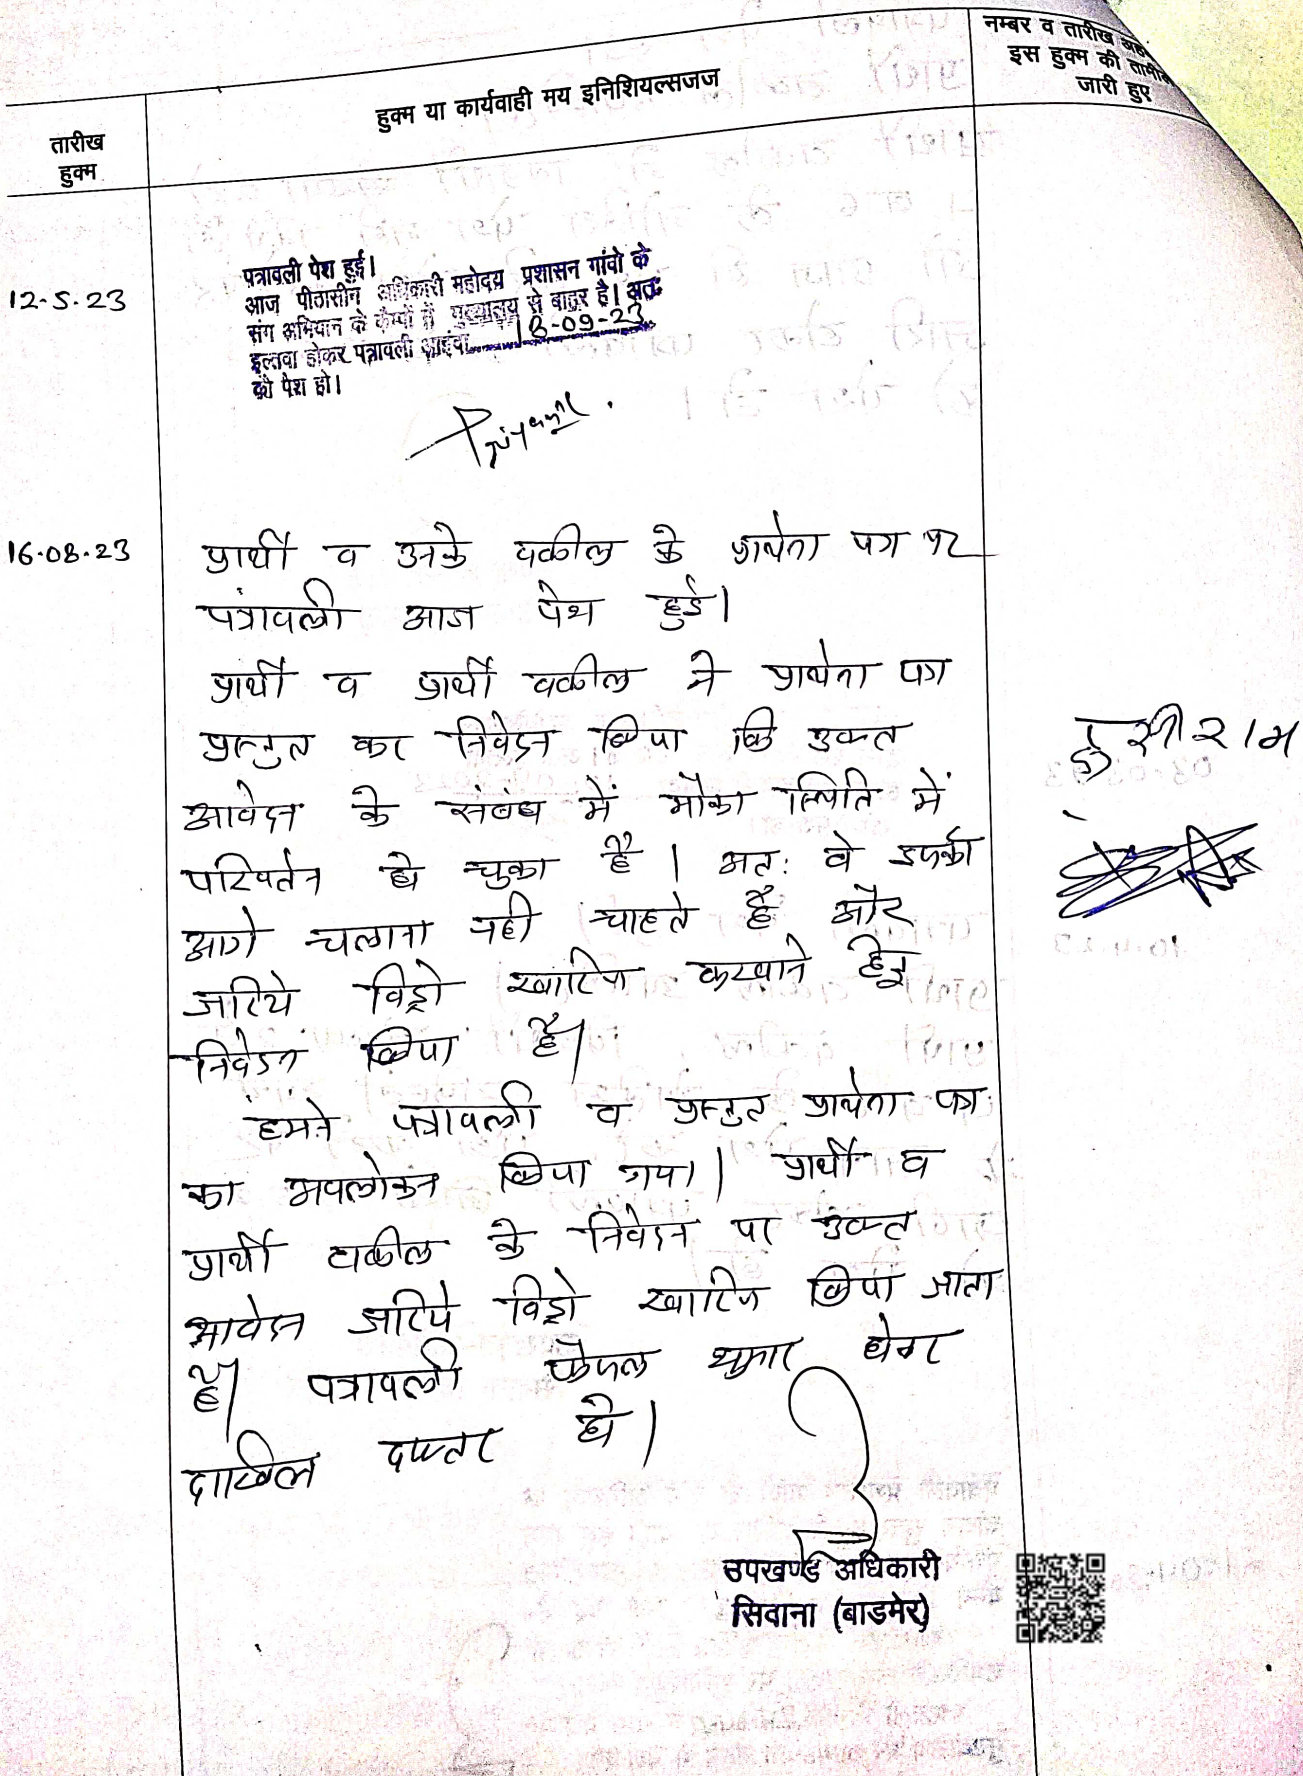 तारीख
हुक्म
हुक्म या कार्यवाही मय इनिशियल्सजज
नम्बर व तारीख
इस हुक्म की
जारी हुए
12-5-23
पत्रावली पेश हुई।
आज पीठासीन अधिकारी महोदय प्रशासन गांवो के
संग अभियान के कैम्पों में मुख्यालय से बाहर है। अतः
इल्तवा होकर पत्रावली आइंदा 18-09-23
को पेश हो।
16-08-23
प्रार्थी व उनके वकील के प्रार्थना पत्र पर
पत्रावली आज पेश हुई।
प्रार्थी व प्रार्थी वकील ने प्रार्थना पत्र
प्रस्तुत कर निवेदन किया कि उक्त
आवेदन के संबंध में मौका स्थिति में
परिवर्तन हो चुका है। अत: वे इसको
आगे चलाना नही चाहते है और
जरिये विड्रो खारिज करवाने हेतु
निवेदन किया है।
हमने पत्रावली व प्रस्तुत प्रार्थना पत्र
का अवलोकन किया गया। प्रार्थी व
प्रार्थी वकील के निवेदन पर उक्त
आवेदन जरिये विड्रो खारिज किया जाता
है। पत्रावली फैसल शुमार होकर
दाखिल दफ्तर हो।
उपखण्ड अधिकारी
सिवाना (बाडमेर)